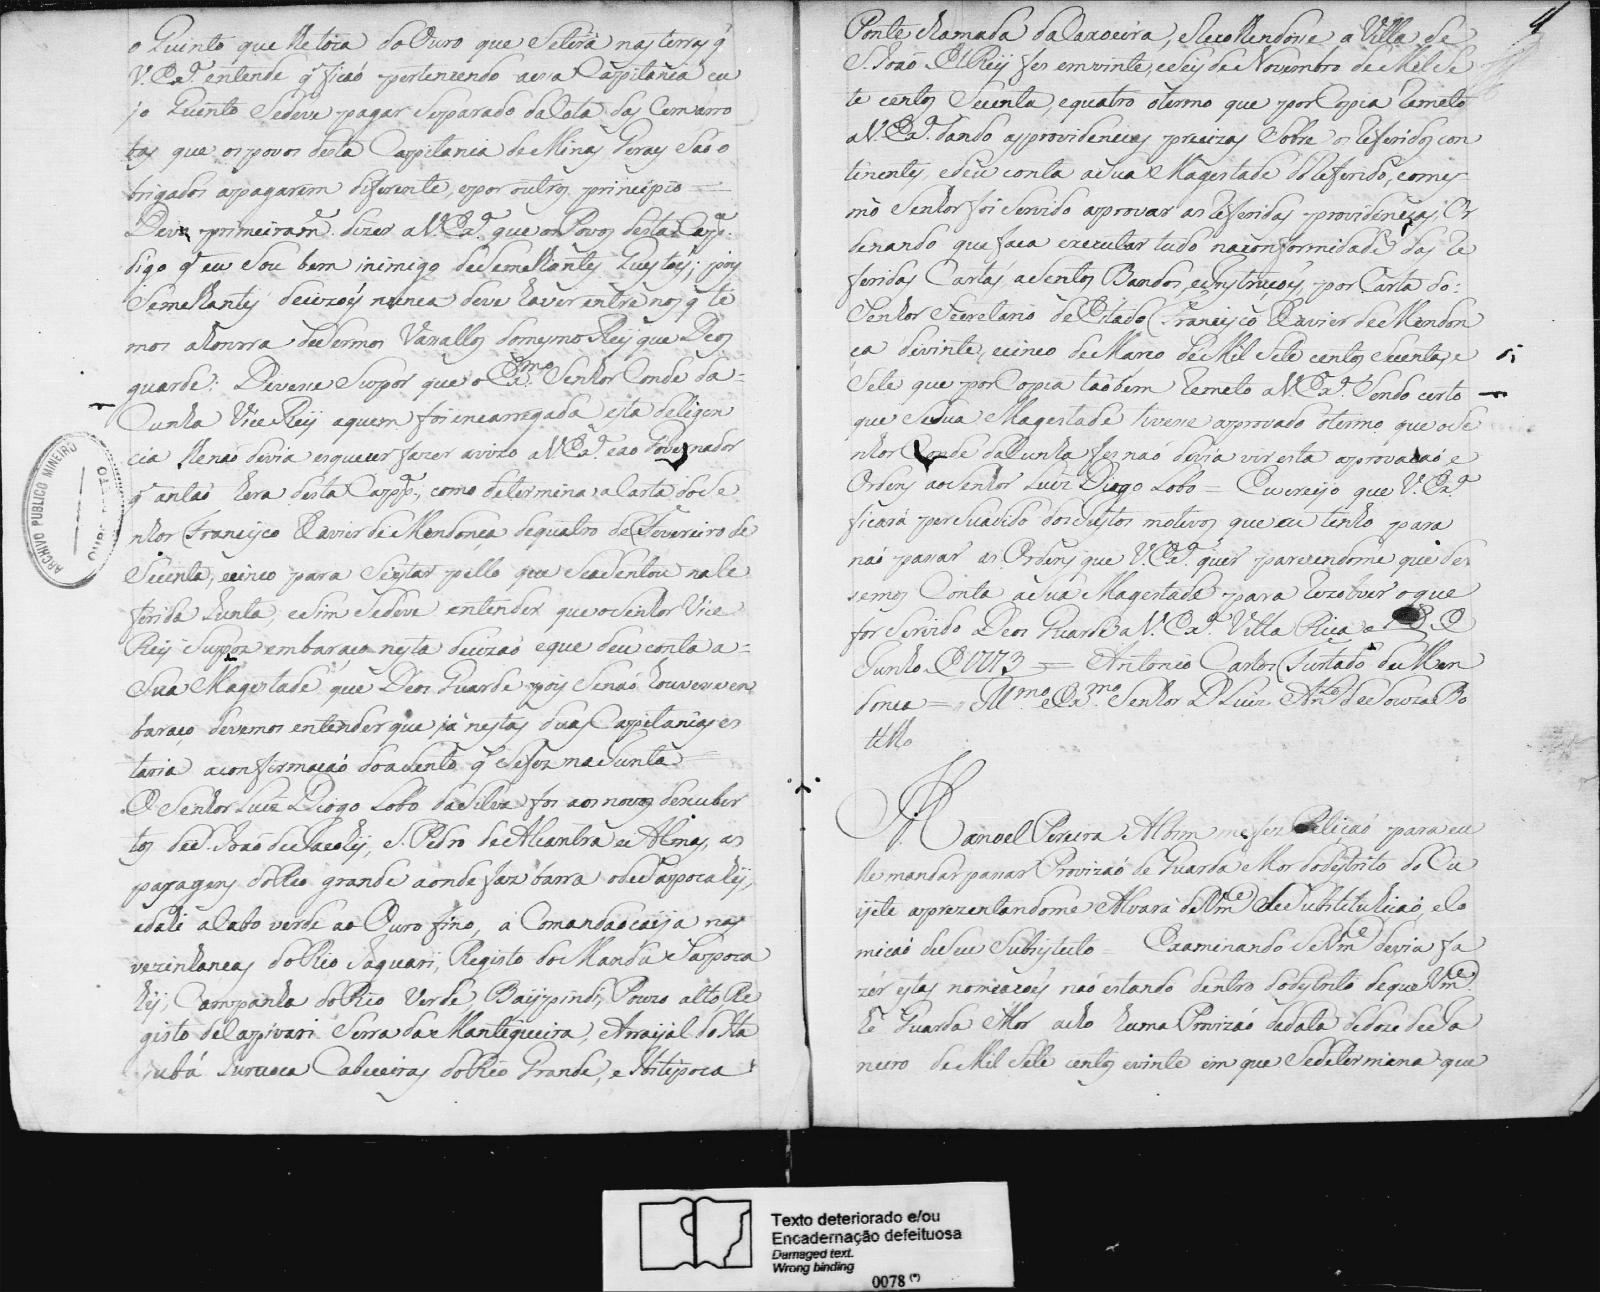 o Quinto que he toca do Ouro que setirà nas terras q̃
V. Ex.ª entende q̃ ficaõ pertencendo aesa Cappitania cu
jo Quinto sedeve pagar separado da Cota das Cem arro
bas que os povos desta Cappitania de Minas Geraes saõ o
brigados apagarem diferente, epor outros principio =
Devo primeiram.te dizer a V. Ex.ª que os Povos desta Capp.
digo q̃ eu sou bem inimigo desemelhantes Questoẽs; pois
semelhantes decizoẽs nunca deve haver entre nos q̃ te
mos ahonrra desermos Vasallos domesmo Rey que Deos
guarde: Devese supor que o Ex.mo Senhor Conde da =
Cunha Vice Rey aquem foi encarregada esta deligen
cia senaõ devia esquecer fazer avizo a V. Ex.ª eao Governador
q̃ antaõ hera desta Capp.ª, como determina aCarta doSe
nhor Francisco Xavier de Mendonça dequatro de Fevereiro de
Secenta, ecinco para sestar pello que seasentou nare
ferida Junta, esim sedeve entender que oSenhor Vice
Rey Supoz embaraço nesta decizaõ eque deu conta a =
Sua Magestade que Deos Guarde pois senaõ houvese en
baraço devemos entender que já nestas duas Cappitanias es
taria aconfirmaçaõ doasento q̃ sefez naJunta =
O Senhor Luiz Diogo Lobo da Silva foi aos novos descuber
tos de S. Joaõ de Jacohy, S. Pedro de Alcantra e Almas, as
paragens doRio grande aonde faz barra ode Sapocahy,
edahi aCabo verde ao Ouro fino, a Comandaocaia nas
vezinhancas doRio Jaguari, Registo do Mandu e Sapoca
hy, Campanha doRio Verde, Baependi, Pouzo alto Re
gisto de Capivari Serra da Mantiqueira, Arraijal do Ita
jubá Juruoca Cabeceiras doRio Grande, e Ibitipoca
Ponte chamada da Caxoeira, eRecolhendose a Villa de
S. Joaõ d El Rey fes emvinte, eseis de Novembro de Mil Se
te centos Secenta, equatro otermo que por Copia remeto
aV. Ex.ª dando asprovidencias precizas Sobre os Referidos con
tinentes, edeu conta aSua Magestade do Referido, eomes
mo Senhor foi servido approvar as Referidas providencias, Or
denando que faca executar tudo naconformidade das re
feridas Cartas, asentos Bandos, einstruçoẽs, por Carta do:
Senhor Secretario de Estado Francisco Xavier de Mendon
ça devinte, ecinco de Marco de Mil Sete centos Secenta, e
Sete que por Copia taõbem remeto aV. Ex.ª Sendo certo
que seSua Magestade tivese aprovado otermo que oSe
nhor Conde da Cunha fes naõ devia vir esta approvaçaõ e
Ordens aoSenhor Luiz Diogo Lobo = Eu creijo que V. Ex.ª
ficará persuadido dos justos motivos que eu tenho para
naõ pasar as Ordens que V. Ex.ª quer parecendome que des
semos Conta aSua Magestade para rezolver oque
for Servido Deos Guarde a V. Ex.ª Villa Rica a de
Junho de 1773 = Antonio Carlos Furtado de Men
donca = Ill.mo e Ex.mo Senhor D. Luiz An.to de Souza Bo
telho
Manoel Pereira Albim me fez Petiçaõ para eu
he mandar pasar Provizaõ de Guarda Mor dodestrito do Cu
iete aprezentandome Alvará deVm.ce de Substituhicaõ, eNo
miçaõ deseu Substituto = Examinando se Vm.ce devia fa
zer estas nomeacoẽs naõ estando dentro dodestrito deque Vm.ce
hé Guarda Mor acho huma Provizaõ dadata dedoze de Ja
neiro de Mil Sete centos evinte em que Sedetermina que
ARCHIVO PUBLICO MINEIRO
OURO PRETO
Texto deteriorado e/ou
Encadernação defeituosa
Damaged text.
Wrong binding
0078 (*)